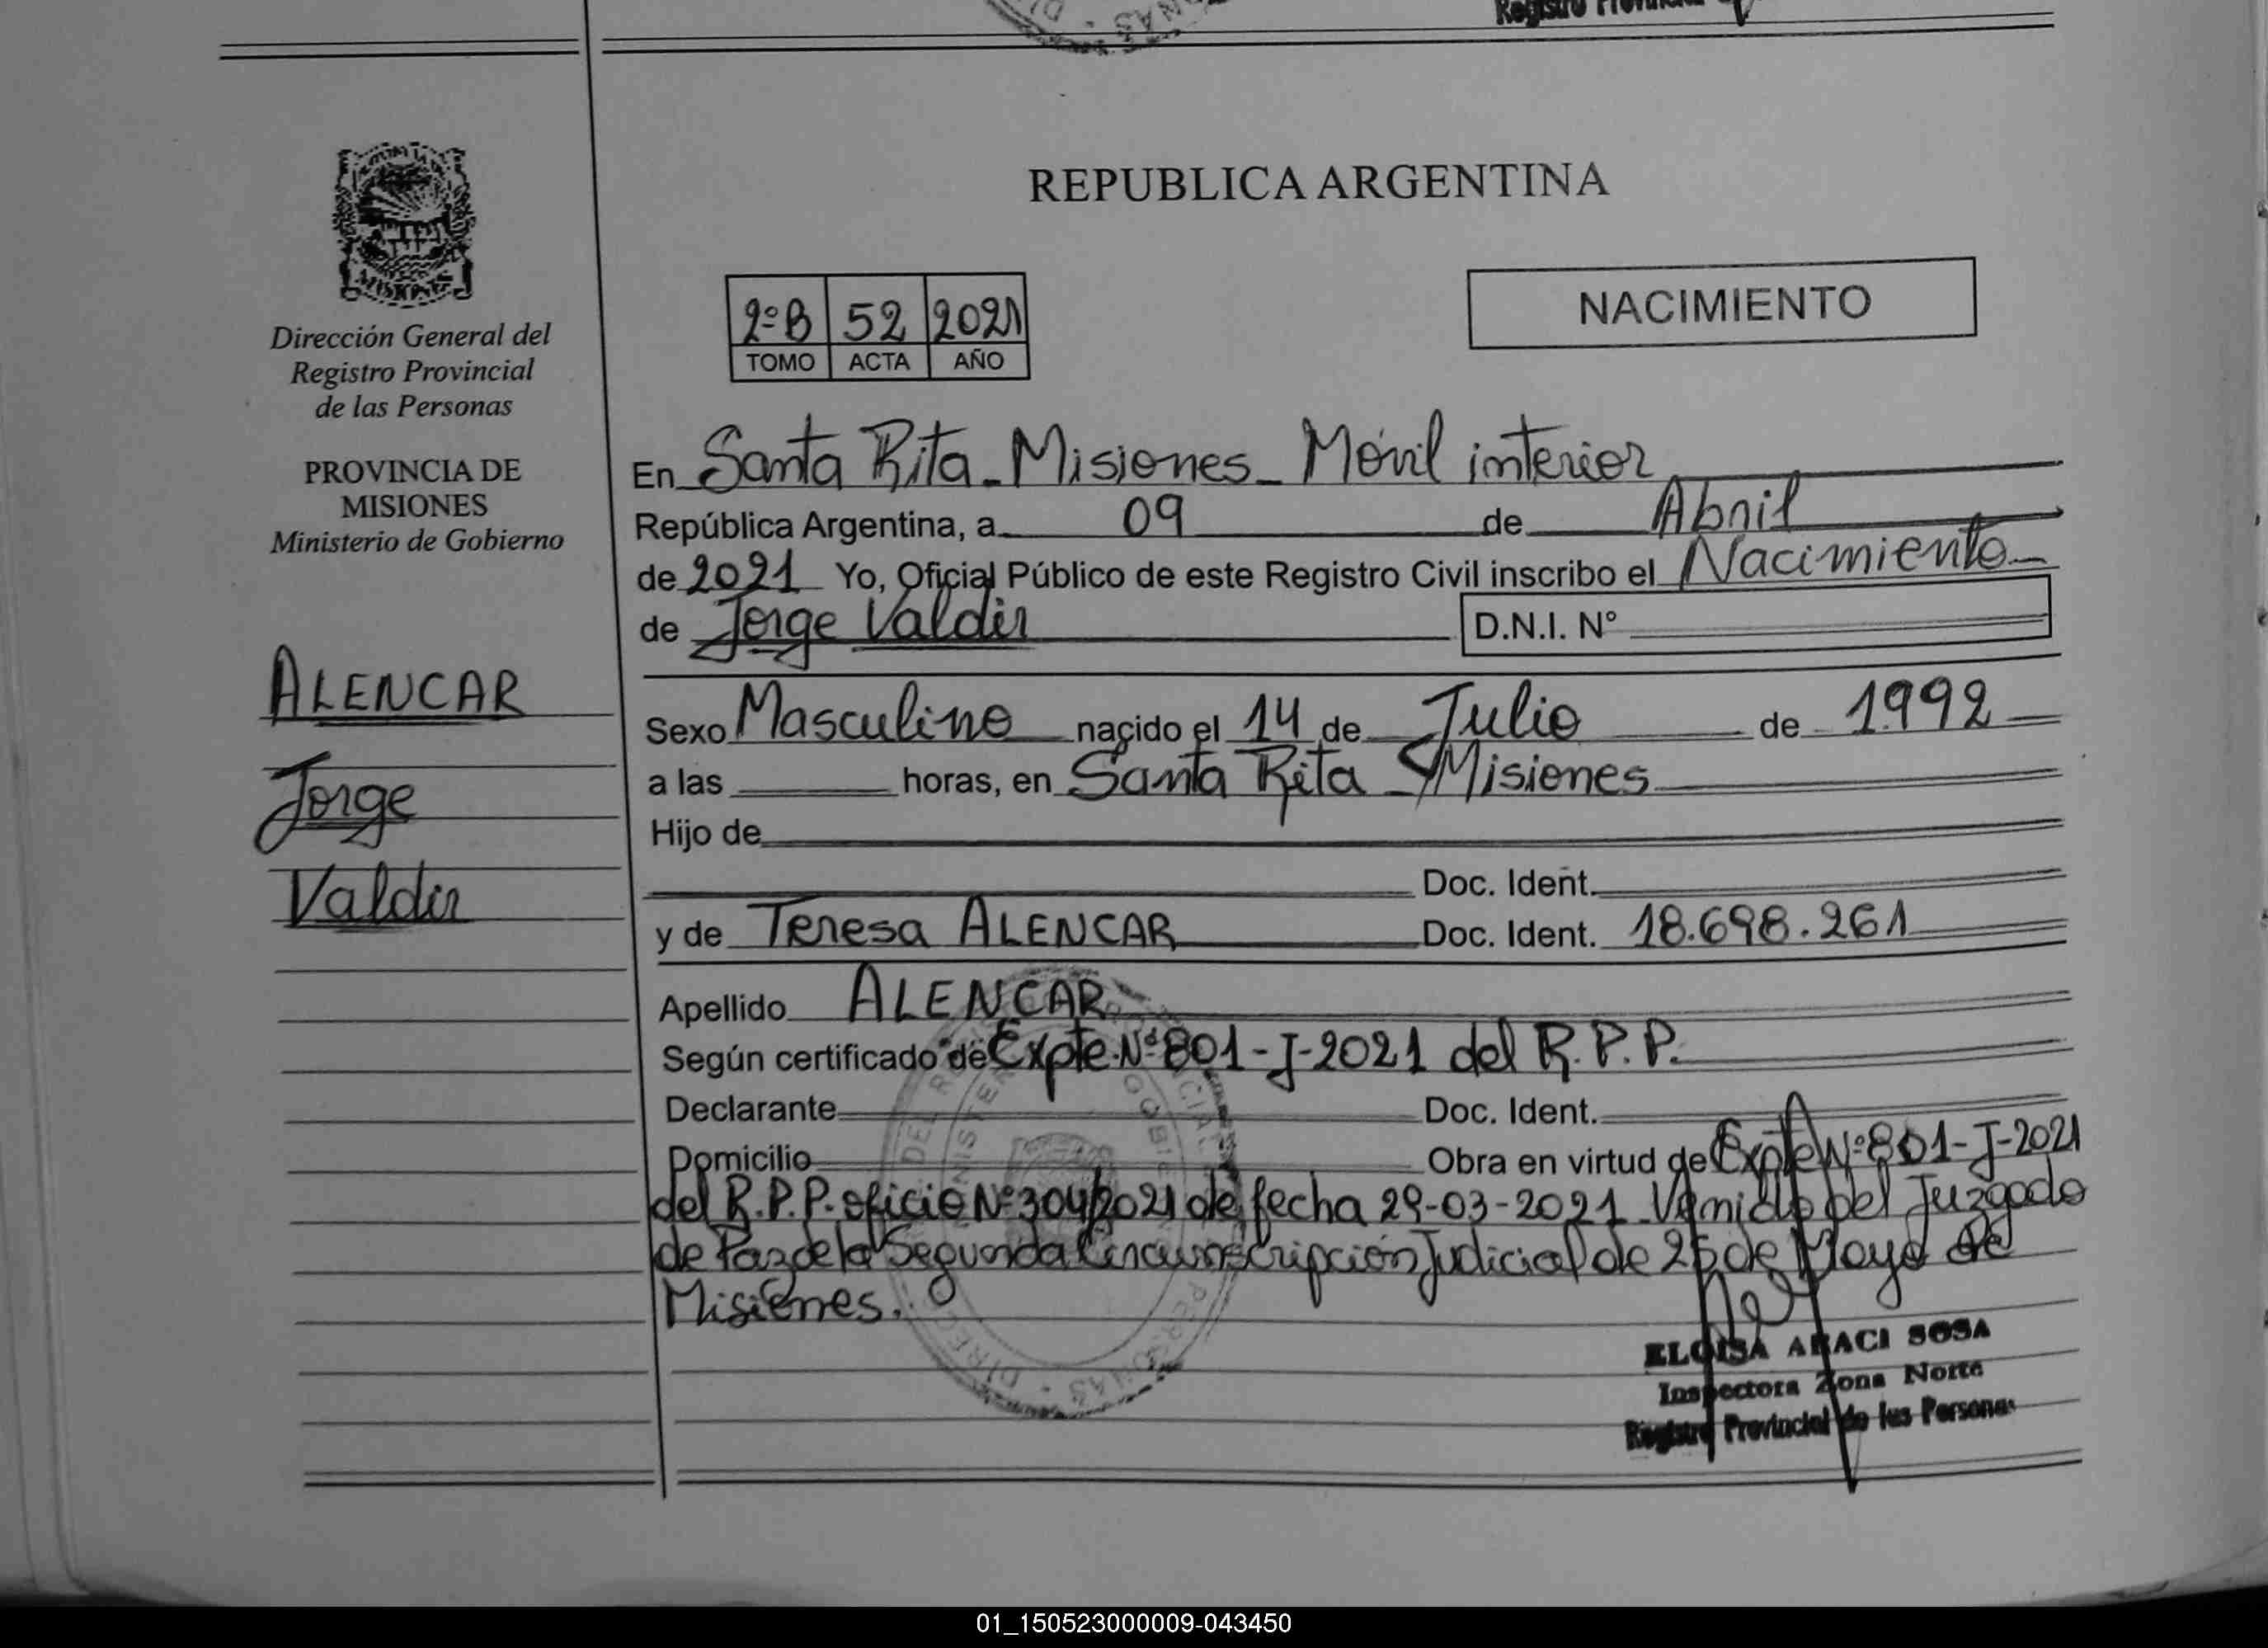 Registro Provincial
REPUBLICA ARGENTINA
Dirección General del
Registro Provincial
de las Personas
PROVINCIA DE
MISIONES
Ministerio de Gobierno
ALENCAR
Jorge
Valdir
2º B 52 2021
TOMO ACTA AÑO
NACIMIENTO
En Santa Rita - Misiones - Móvil interior
República Argentina, a 09 de Abril
de 2021 Yo, Oficial Público de este Registro Civil inscribo el Nacimiento
de Jorge Valdir D.N.I. Nº
Sexo Masculino nacido el 14 de Julio de 1992
a las horas, en Santa Rita - Misiones
Hijo de
Doc. Ident.
y de Teresa ALENCAR Doc. Ident. 18.698.261
Apellido ALENCAR
Según certificado de Expte. Nº 801-J-2021 del R.P.P.
Declarante Doc. Ident.
Domicilio Obra en virtud de Expte Nº 801-J-2021
del R.P.P. oficio Nº 304/2021 de fecha 29-03-2021 Venido del Juzgado
de Paz de la Segunda Circunscripción Judicial de 25 de Mayo de
Misiones.
ELOISA ARACI SOSA
Inspectora Zona Norte
Registro Provincial de las Personas
01_150523000009-043450